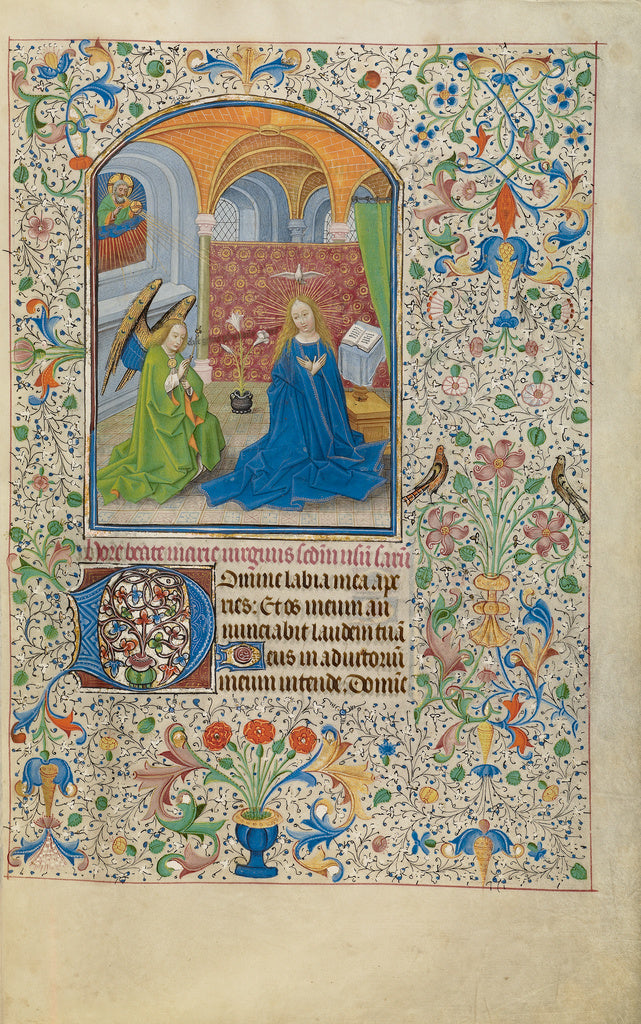 Hore beate marie virginis sedm usu sarū
Domine labia mea ape
ries: Et os meum an
nunciabit laudem tuā
Deus in adiutoriū
meum intende. Domine